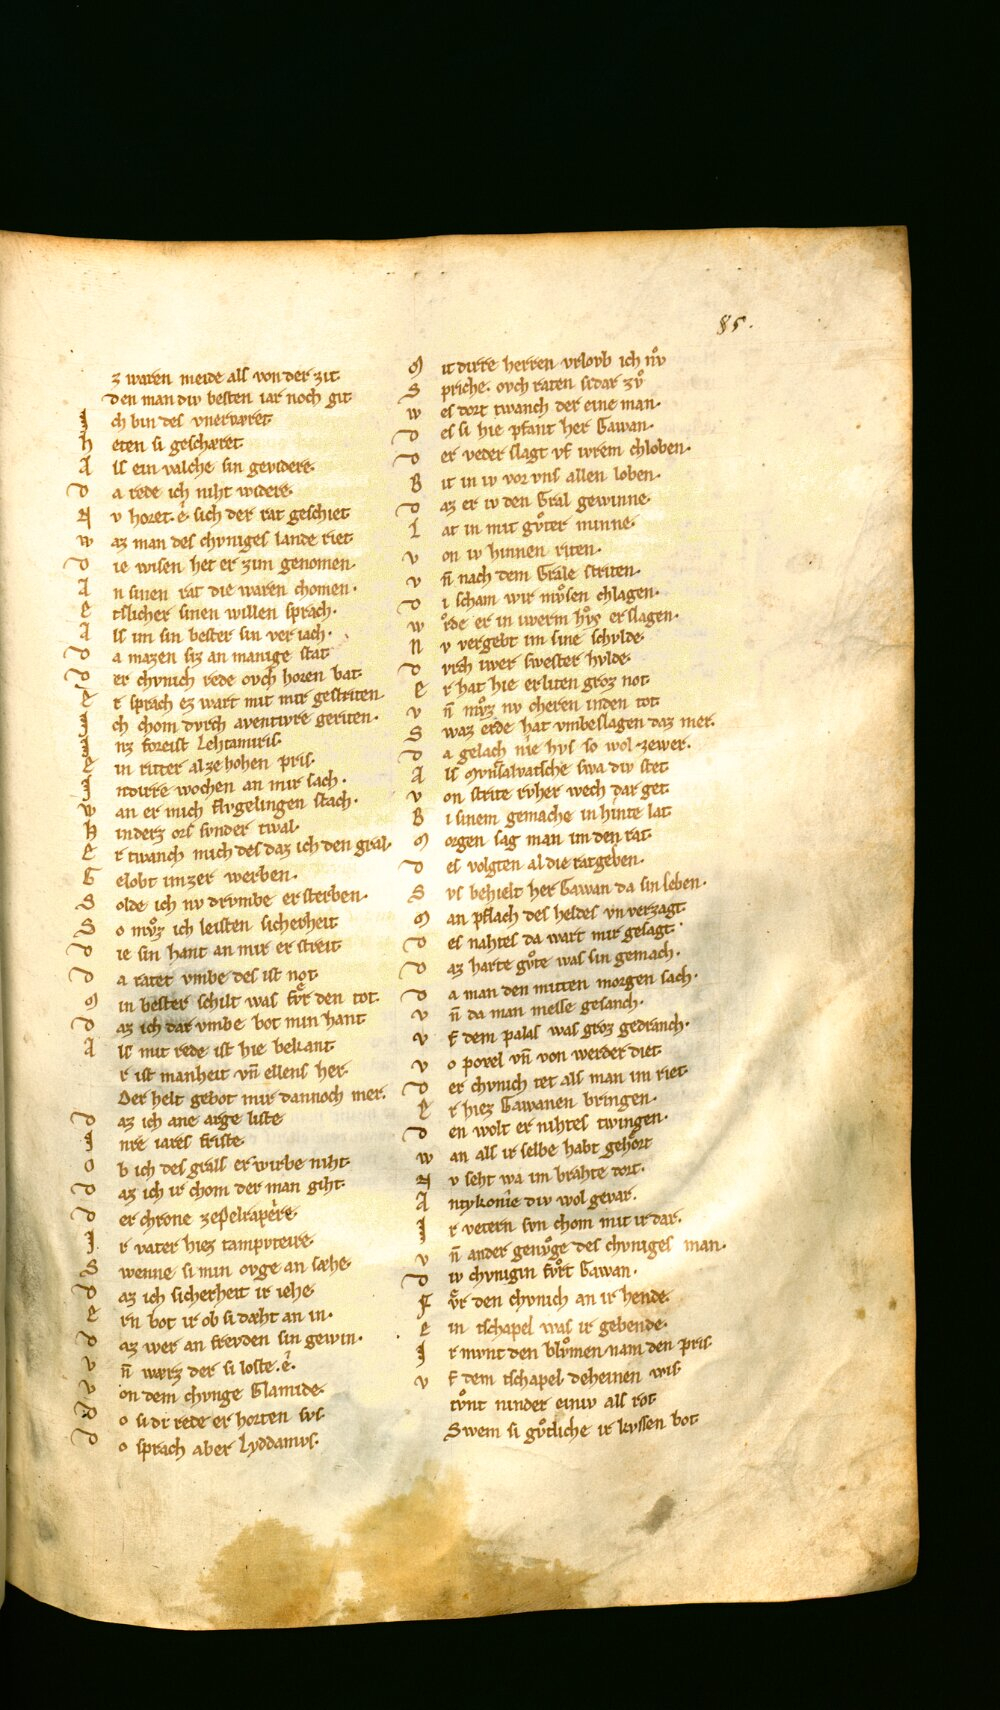 85.
z waren meide als von der zit
den man div besten iar noch git
J ch bin des vnerværet
h eten si geschæret
A ls ein valche sin gevidere
D a rede ich niht widere
N v horet. e. sich der rat geschiet
w az man des chvniges lande riet
D ie wisen het er zim genomen
A n sinen rat die waren chomen.
E tslicher sinen willen sprach.
A ls im sin bester sin veriach.
D a mazen siz an manige stat
D er chvnich rede ovch horen bat
E r sprach ez wart mit mir gestriten
J ch chom dvrch aventivre geriten.
J nz foreist Lehtamris
E in ritter al ze hohen pris.
J ndirre wochen an mir sach.
w an er mich flvgelingen stach.
H inderz ors svnder twal
E r twanch mich des daz ich den gral
G elobt im zer werben.
S olde ich nv drvmbe ersterben.
S o mvͦz ich leisten sicherheit
D ie sin hant an mir erstreit
D a ratet vmbe des ist not
M in bester schilt was fvͤr den tot
D az ich dar vmbe bot min hant
A ls mit rede ist hie bekant
r ist manheit vn̄ ellens her
Der helt gebot mir dannoch mer.
D az ich ane arge liste
J nre iares friste
O b ich des grals erwirbe niht
D az ich ir chom der man giht
D er chrone ze Pelrapeͤre
J r vater hiez tampvnteire
S wenne si min ovge an sæhe
D az ich sicherheit ir iehe
E rn bot ir ob si dæht an in.
D az wer an frevden sin gewin.
V n̄ wærz der si loste. e.
V on dem chvnge Clamide
D o si di rede er horten svs
D o sprach aber Lyddamvs.
M it dirre herren vrlovb ich nvͦ
S priche. ovch raten si dar zvͦ
w es dort twanch der eine man.
D es si hie pfant her Gawan.
D er veder slagt vf ivrem chloben.
B it in iv vor vns allen loben.
D az er iv den Gral gewinne
L at in mit gvͦter minne
V on iv hinnen riten.
V n̄ nach dem Grale striten.
D i scham wir mvͦsen chlagen.
w rde er in iwerm hvͦs erslagen.
N v vergebt im sine schvlde
D vrch iwer swester hvlde
E r hat hie erliten groz not
V n̄ mvͦz nv cheren inden tot
S waz erde hat vmbeslagen daz mer.
D a gelach nie hvs so wol zewer.
A ls Mvnsalvatsche swa div stet
V on strite rvher wech dar get
B i sinem gemache in hinte lat
M orgen sag man im den rat
D es volgten al die ratgeben.
S vs behielt her Gawan da sin leben.
M an pflach des heldes vn verzagt
D es nahtes da wart mir gesagt
D az harte gvͦte was sin gemach.
D a man den mitten morgen sach
V n̄ da man messe gesanch.
V f dem palas was groz gedranch.
V o povel vn̄ von werder diet
D er chvnich tet als man im riet
E r hiez Gawanen bringen.
D en wolt er nihtes twingen.
w an als ir selbe habt gehort
N v seht wa im brahte dort.
A ntykonie div wol gevar.
J r vetern svn chom mit ir dar.
V n̄ ander genvͦge des chvniges man.
D iv chvnigin fvͦrt Gawan.
F vͤr den chvnich an ir hende
E in tschapel was ir gebende.
J r mvnt den blvͦmen nam den pris
V f dem tschapel deheinen wis
tvͦnt ninder einiv als rot
Swem si gvͦtliche ir kvssen bot